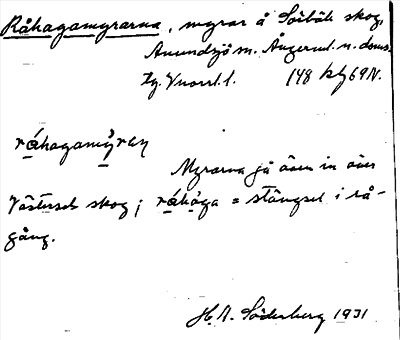 Råhagamyrarna, myrar å Solbäli skog,
Anundsjö sn. Ångerml. n. doms.
Tg. Vnorrl. l. 148 kbg 69 N.
råhagamyran
Myrarna gå även in över
Västersels skog; råhaga = stängsel i rå-
gång.
H. A. Söderberg 1931